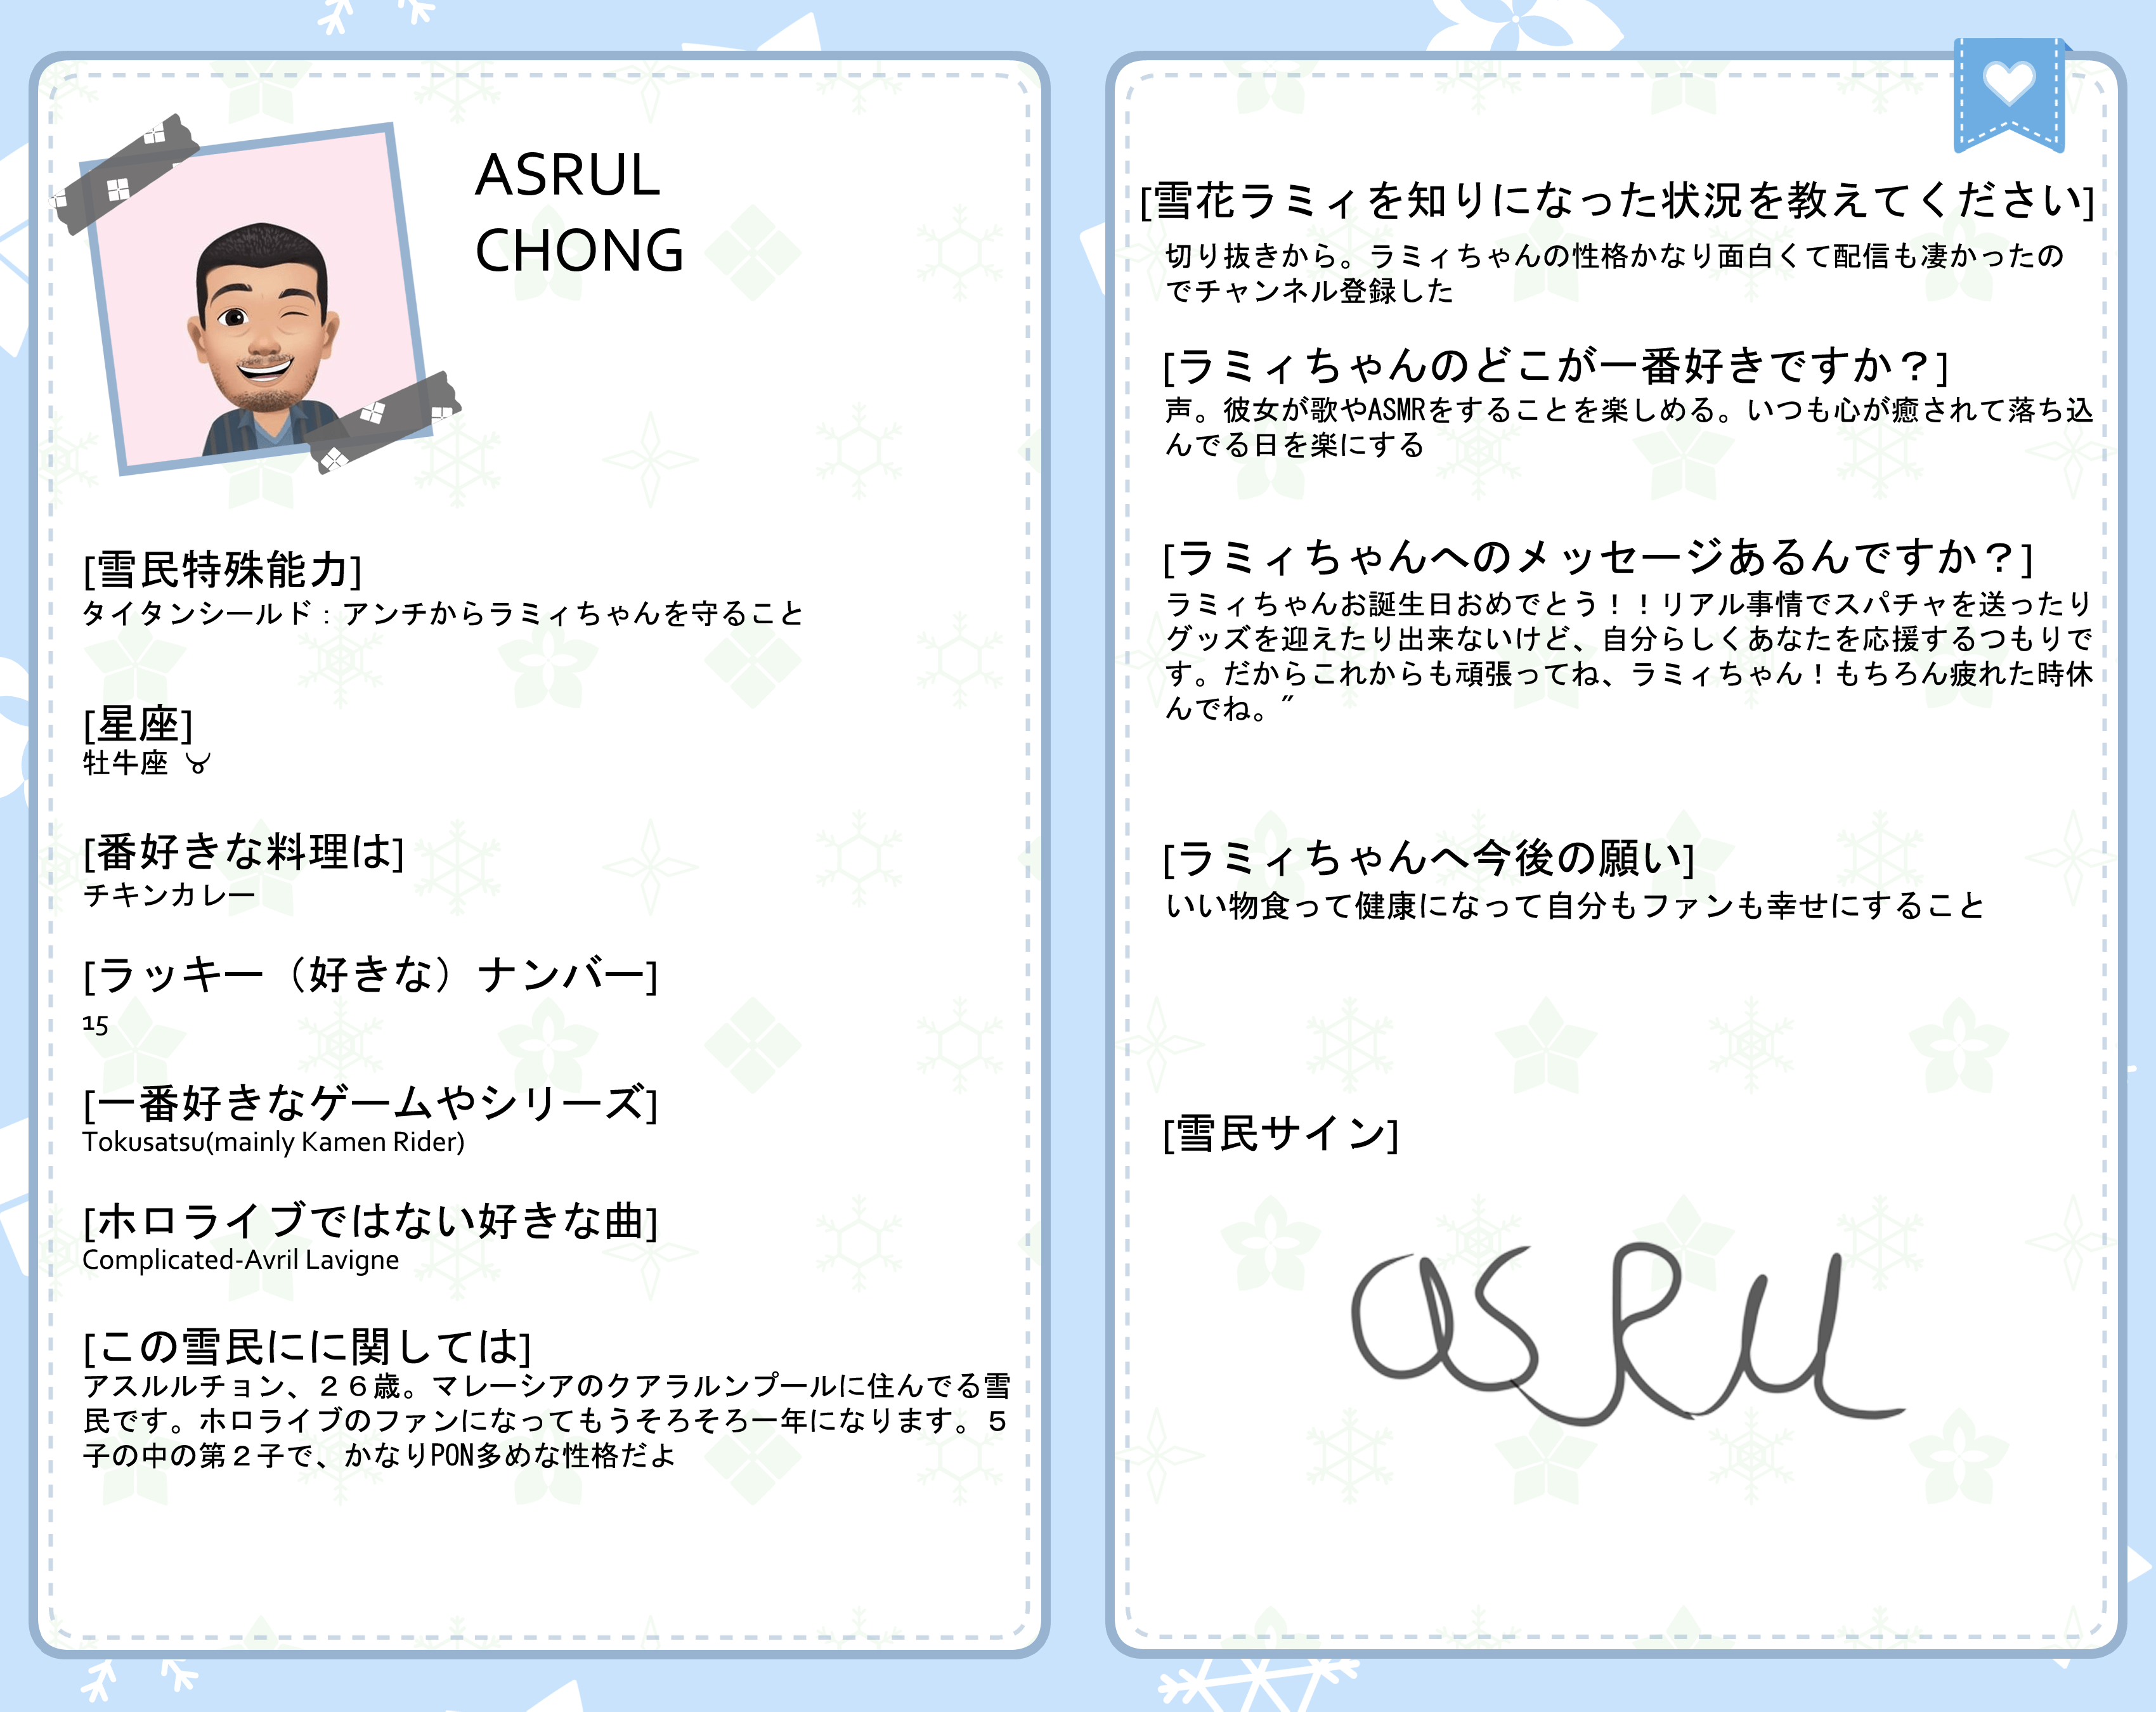 ASRUL
CHONG
[雪民特殊能力]
タイタンシールド：アンチからラミィちゃんを守ること
[星座]
牡牛座 ♉
[番好きな料理は]
チキンカレー
[ラッキー（好きな）ナンバー]
15
[一番好きなゲームやシリーズ]
Tokusatsu(mainly Kamen Rider)
[ホロライブではない好きな曲]
Complicated-Avril Lavigne
[この雪民にに関しては]
アスルルチョン、２６歳。マレーシアのクアラルンプールに住んでる雪
民です。ホロライブのファンになってもうそろそろ一年になります。５
子の中の第２子で、かなりPON多めな性格だよ
[雪花ラミィを知りになった状況を教えてください]
切り抜きから。ラミィちゃんの性格かなり面白くて配信も凄かったの
でチャンネル登録した
[ラミィちゃんのどこが一番好きですか？]
声。彼女が歌やASMRをすることを楽しめる。いつも心が癒されて落ち込
んでる日を楽にする
[ラミィちゃんへのメッセージあるんですか？]
ラミィちゃんお誕生日おめでとう！！リアル事情でスパチャを送ったり
グッズを迎えたり出来ないけど、自分らしくあなたを応援するつもりで
す。だからこれからも頑張ってね、ラミィちゃん！もちろん疲れた時休
んでね。”
[ラミィちゃんへ今後の願い]
いい物食って健康になって自分もファンも幸せにすること
[雪民サイン]
asRul